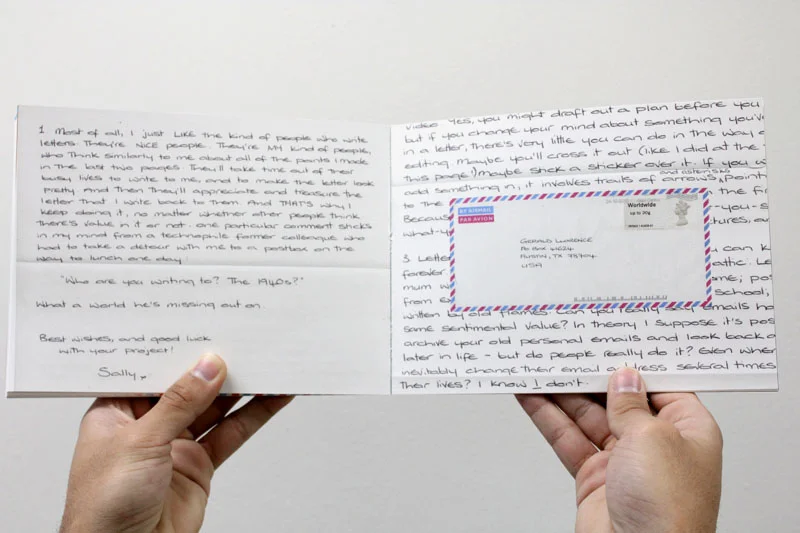 1 Most of all, I just LIKE the kind of people who write
letters. They're NICE people. They're MY kind of people,
who think similarly to me about all of the points I made
in the last two pages. They'll take time out of their
busy lives to write to me, and to make the letter look
pretty. And then they'll appreciate and treasure the
letter that I write back to them. And THAT'S why I
keep doing it, no matter whether other people think
there's value in it or not. One particular comment sticks
in my mind from a technophile former colleague who
had to take a detour with me to a postbox on the
way to lunch one day:
"Who are you writing to? The 1940s?"
What a world he's missing out on.
Best wishes, and good luck
with your project!
Sally x
video. Yes, you might draft out a plan before you
but if you change your mind about something you've
in a letter, there's very little you can do in the way
editing. Maybe you'll cross it out (like I did at the
this page!) Maybe stick a sticker over it. If you
and asterisks
add something in, it involves trails of arrows
to the
Because
what-y
3 Letter
forever.
mum w
from e
written by old flames. Can you really say emails
same sentimental value? In theory I suppose it's
archive your old personal emails and look back
later in life - but do people really do it? Even when
inevitably change their email address several times
their lives? I know I don't.
BY AIRMAIL
PAR AVION
Worldwide
up to 20g
GERARD LAWRENCE
PO BOX 41624
AUSTIN, TX 78704
USA
the fi
-you-s
tures, a
can k
attic. Le
me; po
school;